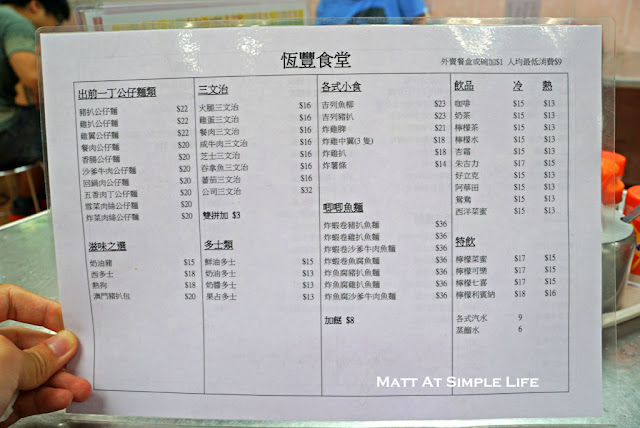 恆豐食堂
外賣餐盒或碗加$1 人均最低消費$9
出前一丁公仔麵類
豬扒公仔麵 $22
雞扒公仔麵 $22
雞翼公仔麵 $22
餐肉公仔麵 $20
香腸公仔麵 $20
沙爹牛肉公仔麵 $20
回鍋肉公仔麵 $20
五香肉丁公仔麵 $20
雪菜肉絲公仔麵 $20
炸菜肉絲公仔麵 $20
滋味之選
奶油豬 $15
西多士 $18
熱狗 $18
澳門豬扒包 $20
三文治
火腿三文治 $16
雞蛋三文治 $16
餐肉三文治 $16
咸牛肉三文治 $16
芝士三文治 $16
吞拿魚三文治 $16
蕃茄三文治 $16
公司三文治 $32
雙拼加 $3
多士類
鮮油多士 $15
奶油多士 $13
奶醬多士 $13
果占多士 $13
各式小食
吉列魚柳 $23
吉列豬扒 $23
炸雞脾 $21
炸雞中翼(3 隻) $18
炸雞扒 $18
炸薯條 $14
唧唧魚麵
炸蝦卷豬扒魚麵 $36
炸蝦卷雞扒魚麵 $36
炸蝦卷沙爹牛魚麵 $36
炸蝦卷魚腐魚麵 $36
炸魚腐豬扒魚麵 $36
炸魚腐雞扒魚麵 $36
炸魚腐沙爹牛肉魚麵 $36
加餸 $8
飲品 冷 熱
咖啡 $15 $13
奶茶 $15 $13
檸檬茶 $15 $13
檸檬水 $15 $13
杏霜 $15 $13
朱古力 $17 $15
好立克 $15 $13
阿華田 $15 $13
鴛鴦 $15 $13
西洋菜蜜 $15 $13
特飲
檸檬菜蜜 $17 $15
檸檬可樂 $17 $15
檸檬七喜 $17 $15
檸檬利賓納 $18 $16
各式汽水 9
蒸餾水 6
MATT AT SIMPLE LIFE